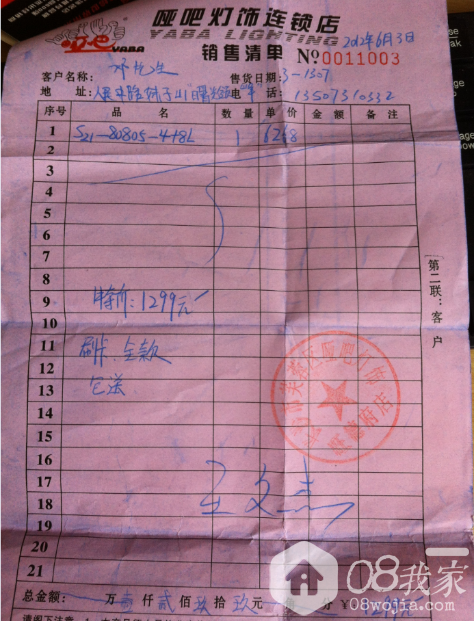 哑吧灯饰连锁店
哑吧
YABA
YABA LIGHTING
销售清单 №0011003 2012年6月3日
客户名称: 先生 售货日期: 3-1307
地 址: 电 话: 13507310332
序号 品 名 数量 单 价 金 额 备 注
1 S21-80805-4+8L 1 6268
2
3
4
5
6
7
8
9 特价:1299元
10
11 刷卡.全款
12
13 包送
14
15
16
17 王文杰
18
19
20
21
第二联:客户
总金额: 万壹仟贰佰玖拾玖元 角 分 ¥ 1299元
08我家
www.08wojia.com